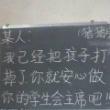 某人：（猪猪
我已经把孩子打
掉了你就安心做
你的学生会主席吧！